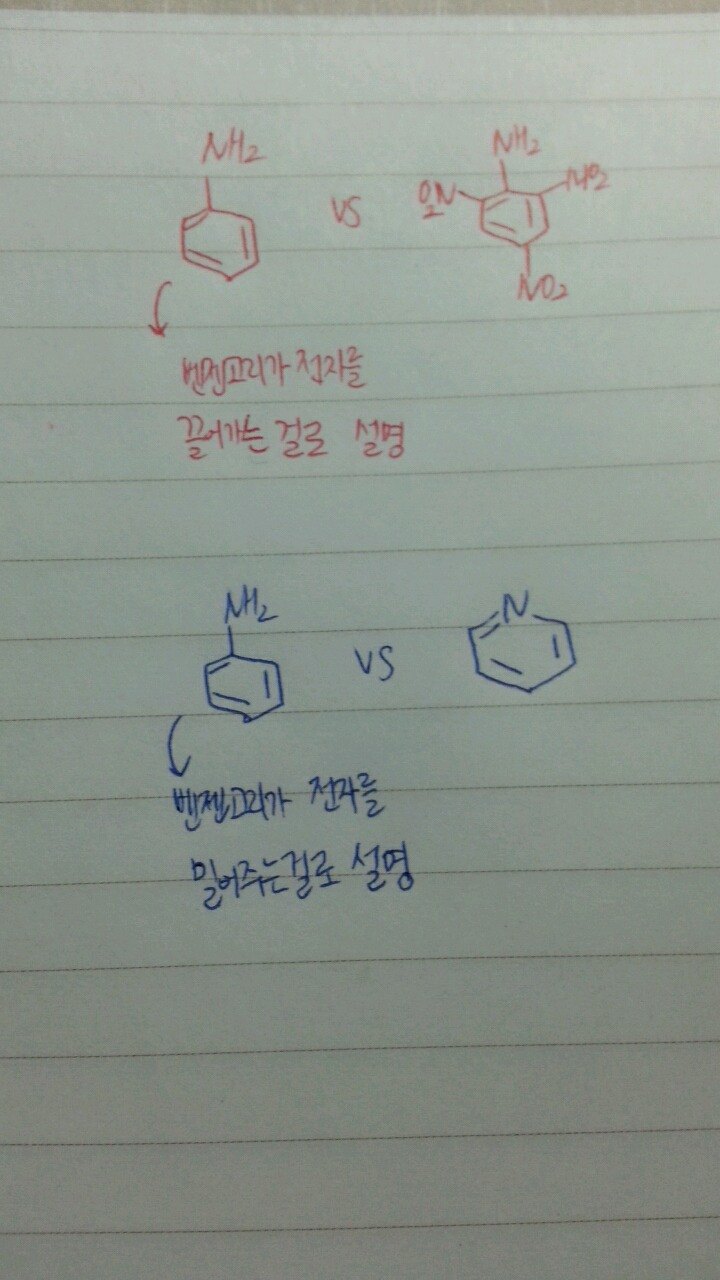 NH2 vs NH2
O2N NO2
NO2
벤젠고리가 전자를
끌어가는 걸로 설명
NH2 vs N
벤젠고리가 전자를
밀어주는걸로 설명